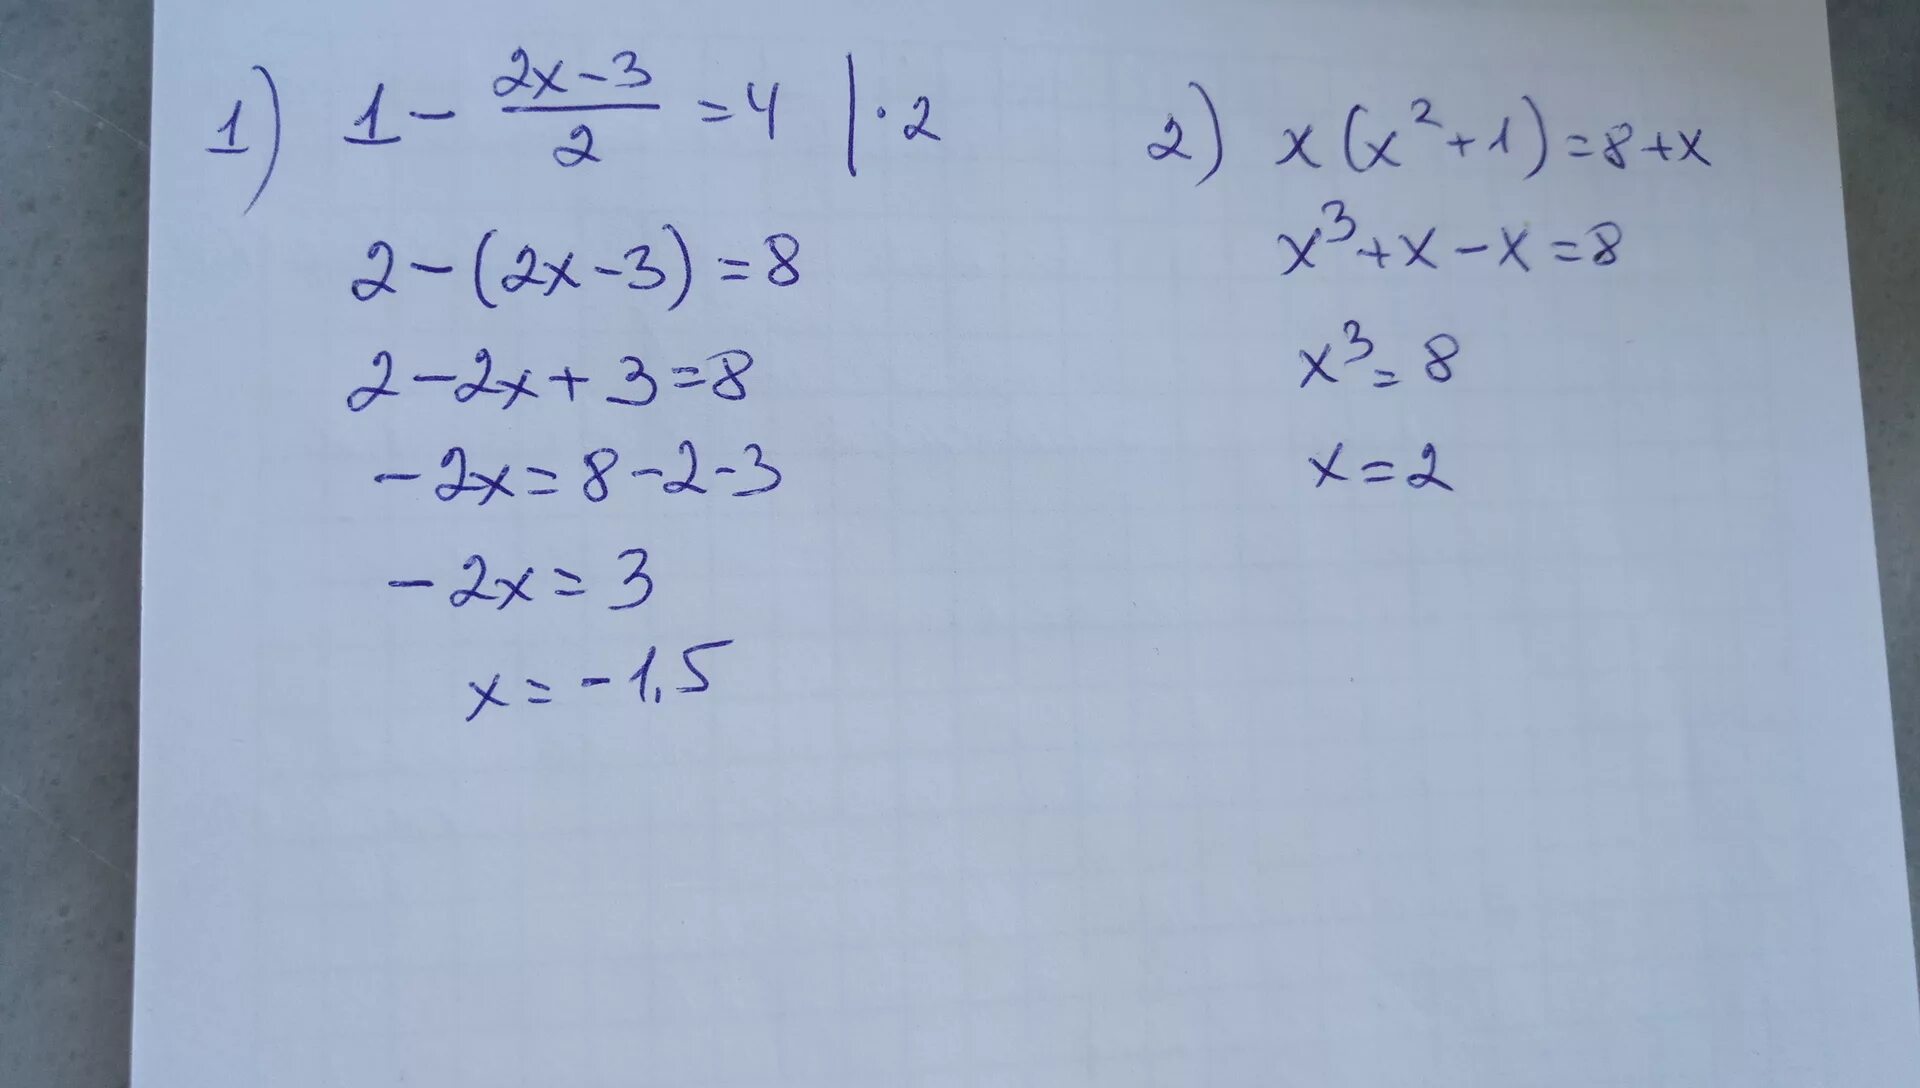 1) 1 - (2x-3)/2 = 4 | · 2
2 - (2x - 3) = 8
2 - 2x + 3 = 8
- 2x = 8 - 2 - 3
- 2x = 3
x = - 1,5
2) x(x² + 1) = 8 + x
x³ + x - x = 8
x³ = 8
x = 2